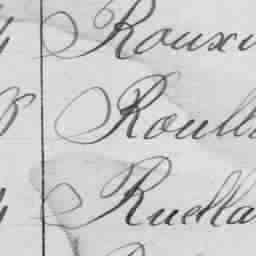 Rouxi
Roull
Ruella